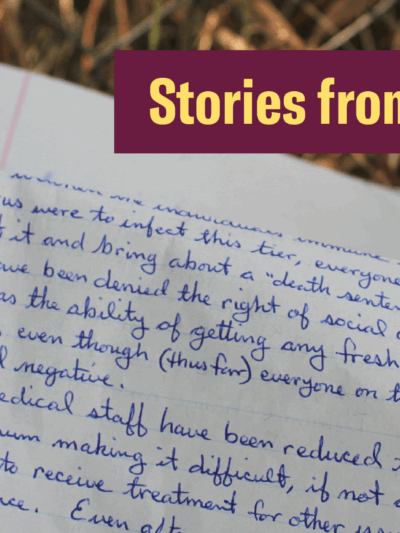 Stories from
immune
us were to infect this tier, everyone
it and bring about a "death senten
ave been denied the right of social
as the ability of getting any fresh
even though (thus far) everyone on t
negative.
edical staff have been reduced
um making it difficult, if not
to receive treatment for other
nce. Even